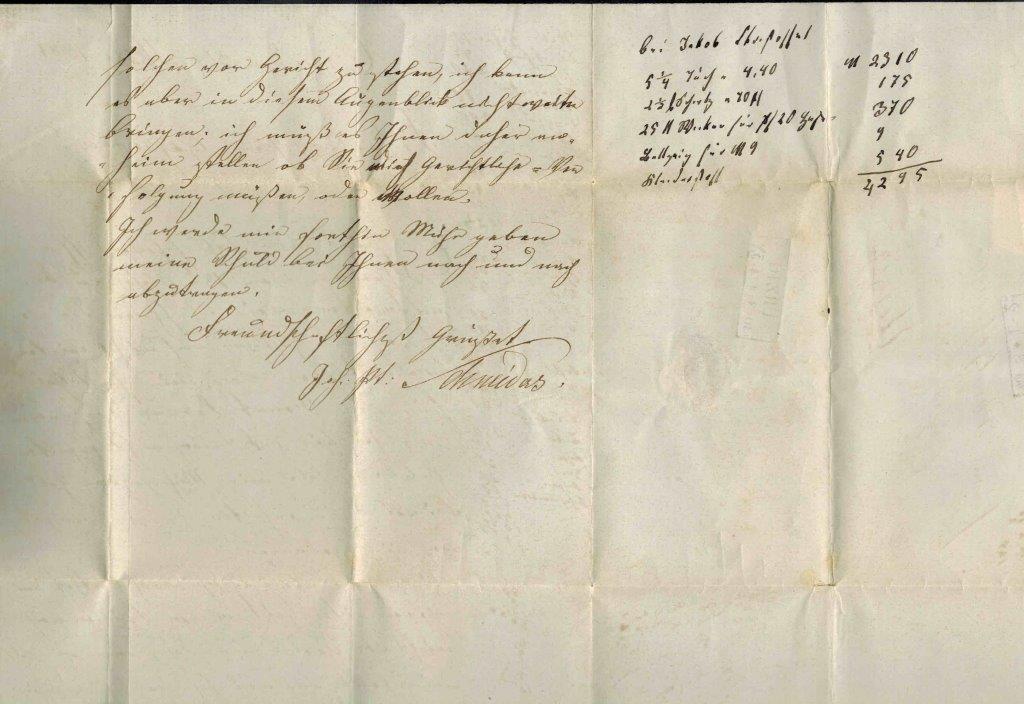 solchen vor Gericht zu stehen, ich kann
es aber in diesem Augenblick nicht weiter
bringen; ich muß es Ihnen daher an-
heim stellen ob Sie mich Gerichtliche = Ver
folgung müßen, oder Wollen.
Ich werde mir forthin Mühe geben
meine Schuld bei Ihnen nach und nach
abzutragen.
Freundschaftlichst Grüßet
Joh. Pt: Schneider.
bei Jakob
5 1/4 Tuch a 4.40
2 1/2
25 für 20
für M 9
M 2310
175
370
9
540
4295